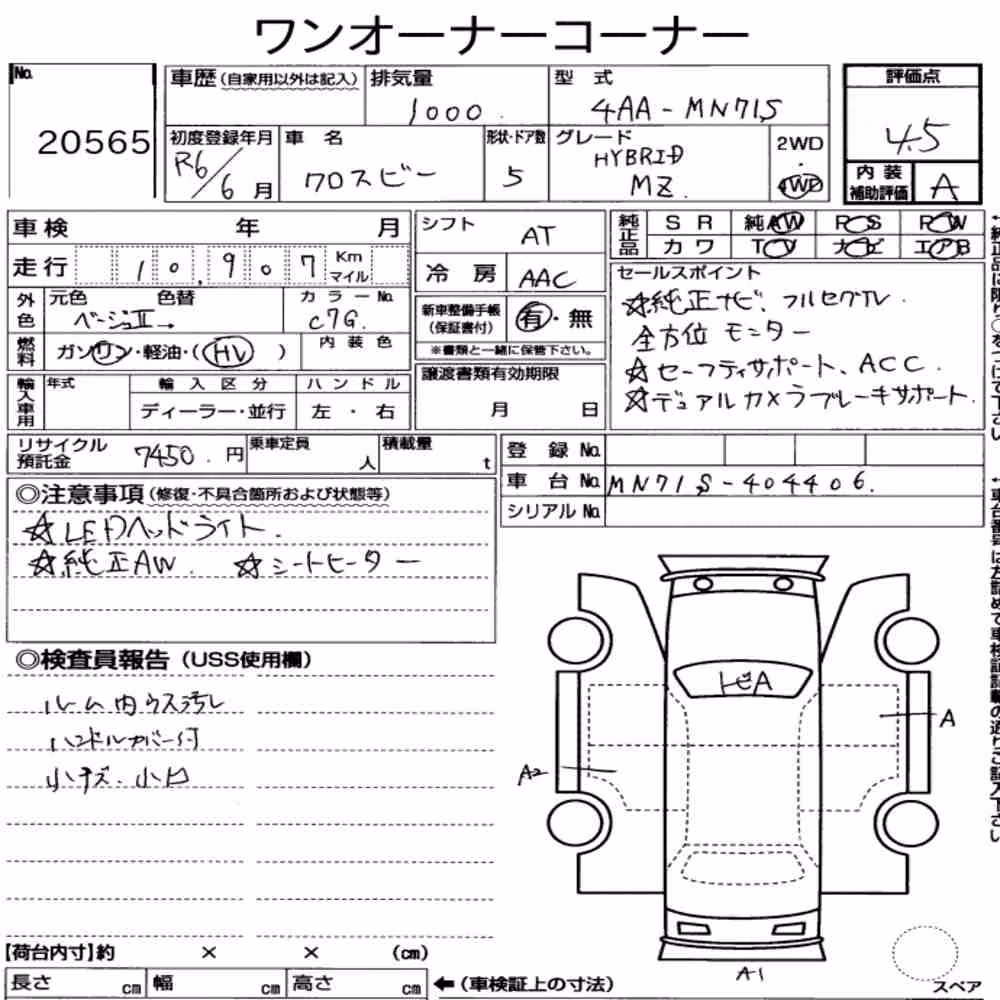 ワンオーナーコーナー
No.
20565
車歴(自家用以外は記入)
排気量
1000
型式
4AA-MN71S
評価点
4.5
初度登録年月
R6/6月
車名
クロスビー
形状・ドア数
5
グレード
HYBRID
MZ
2WD
・
4WD
内装
補助評価
A
車検 年 月
走行 10,907 Km
マイル
シフト
AT
冷房 AAC
純正品
SR 純AW PS PW
カワ TV ナビ エアB
外色
元色 色替
ベージュⅡ→
カラーNo.
C7G.
新車整備手帳
(保証書付)
有・無
※書類と一緒に保管下さい。
セールスポイント
☆純正ナビ、フルセグTV.
全方位モニター
☆セーフティサポート、ACC.
☆デュアルカメラブレーキサポート.
燃料
ガソリン・軽油・(HV)
内装色
輸入車用
年式
輸入区分
ディーラー・並行
ハンドル
左・右
譲渡書類有効期限
月 日
リサイクル
預託金
7450.円
乗車定員
人
積載量
t
登録No.
車台No. MN71S-404406.
シリアルNo.
◎注意事項(修復・不具合箇所および状態等)
☆LEDヘッドライト.
☆純正AW. ☆シートヒーター
◎検査員報告(USS使用欄)
ルーム内ウス汚レ
ハンドルカバー付
小キズ.小凹
トビA
A
A2
A1
スペア
【荷台内寸】約 × × (cm)
長さ cm 幅 cm 高さ cm
←(車検証上の寸法)